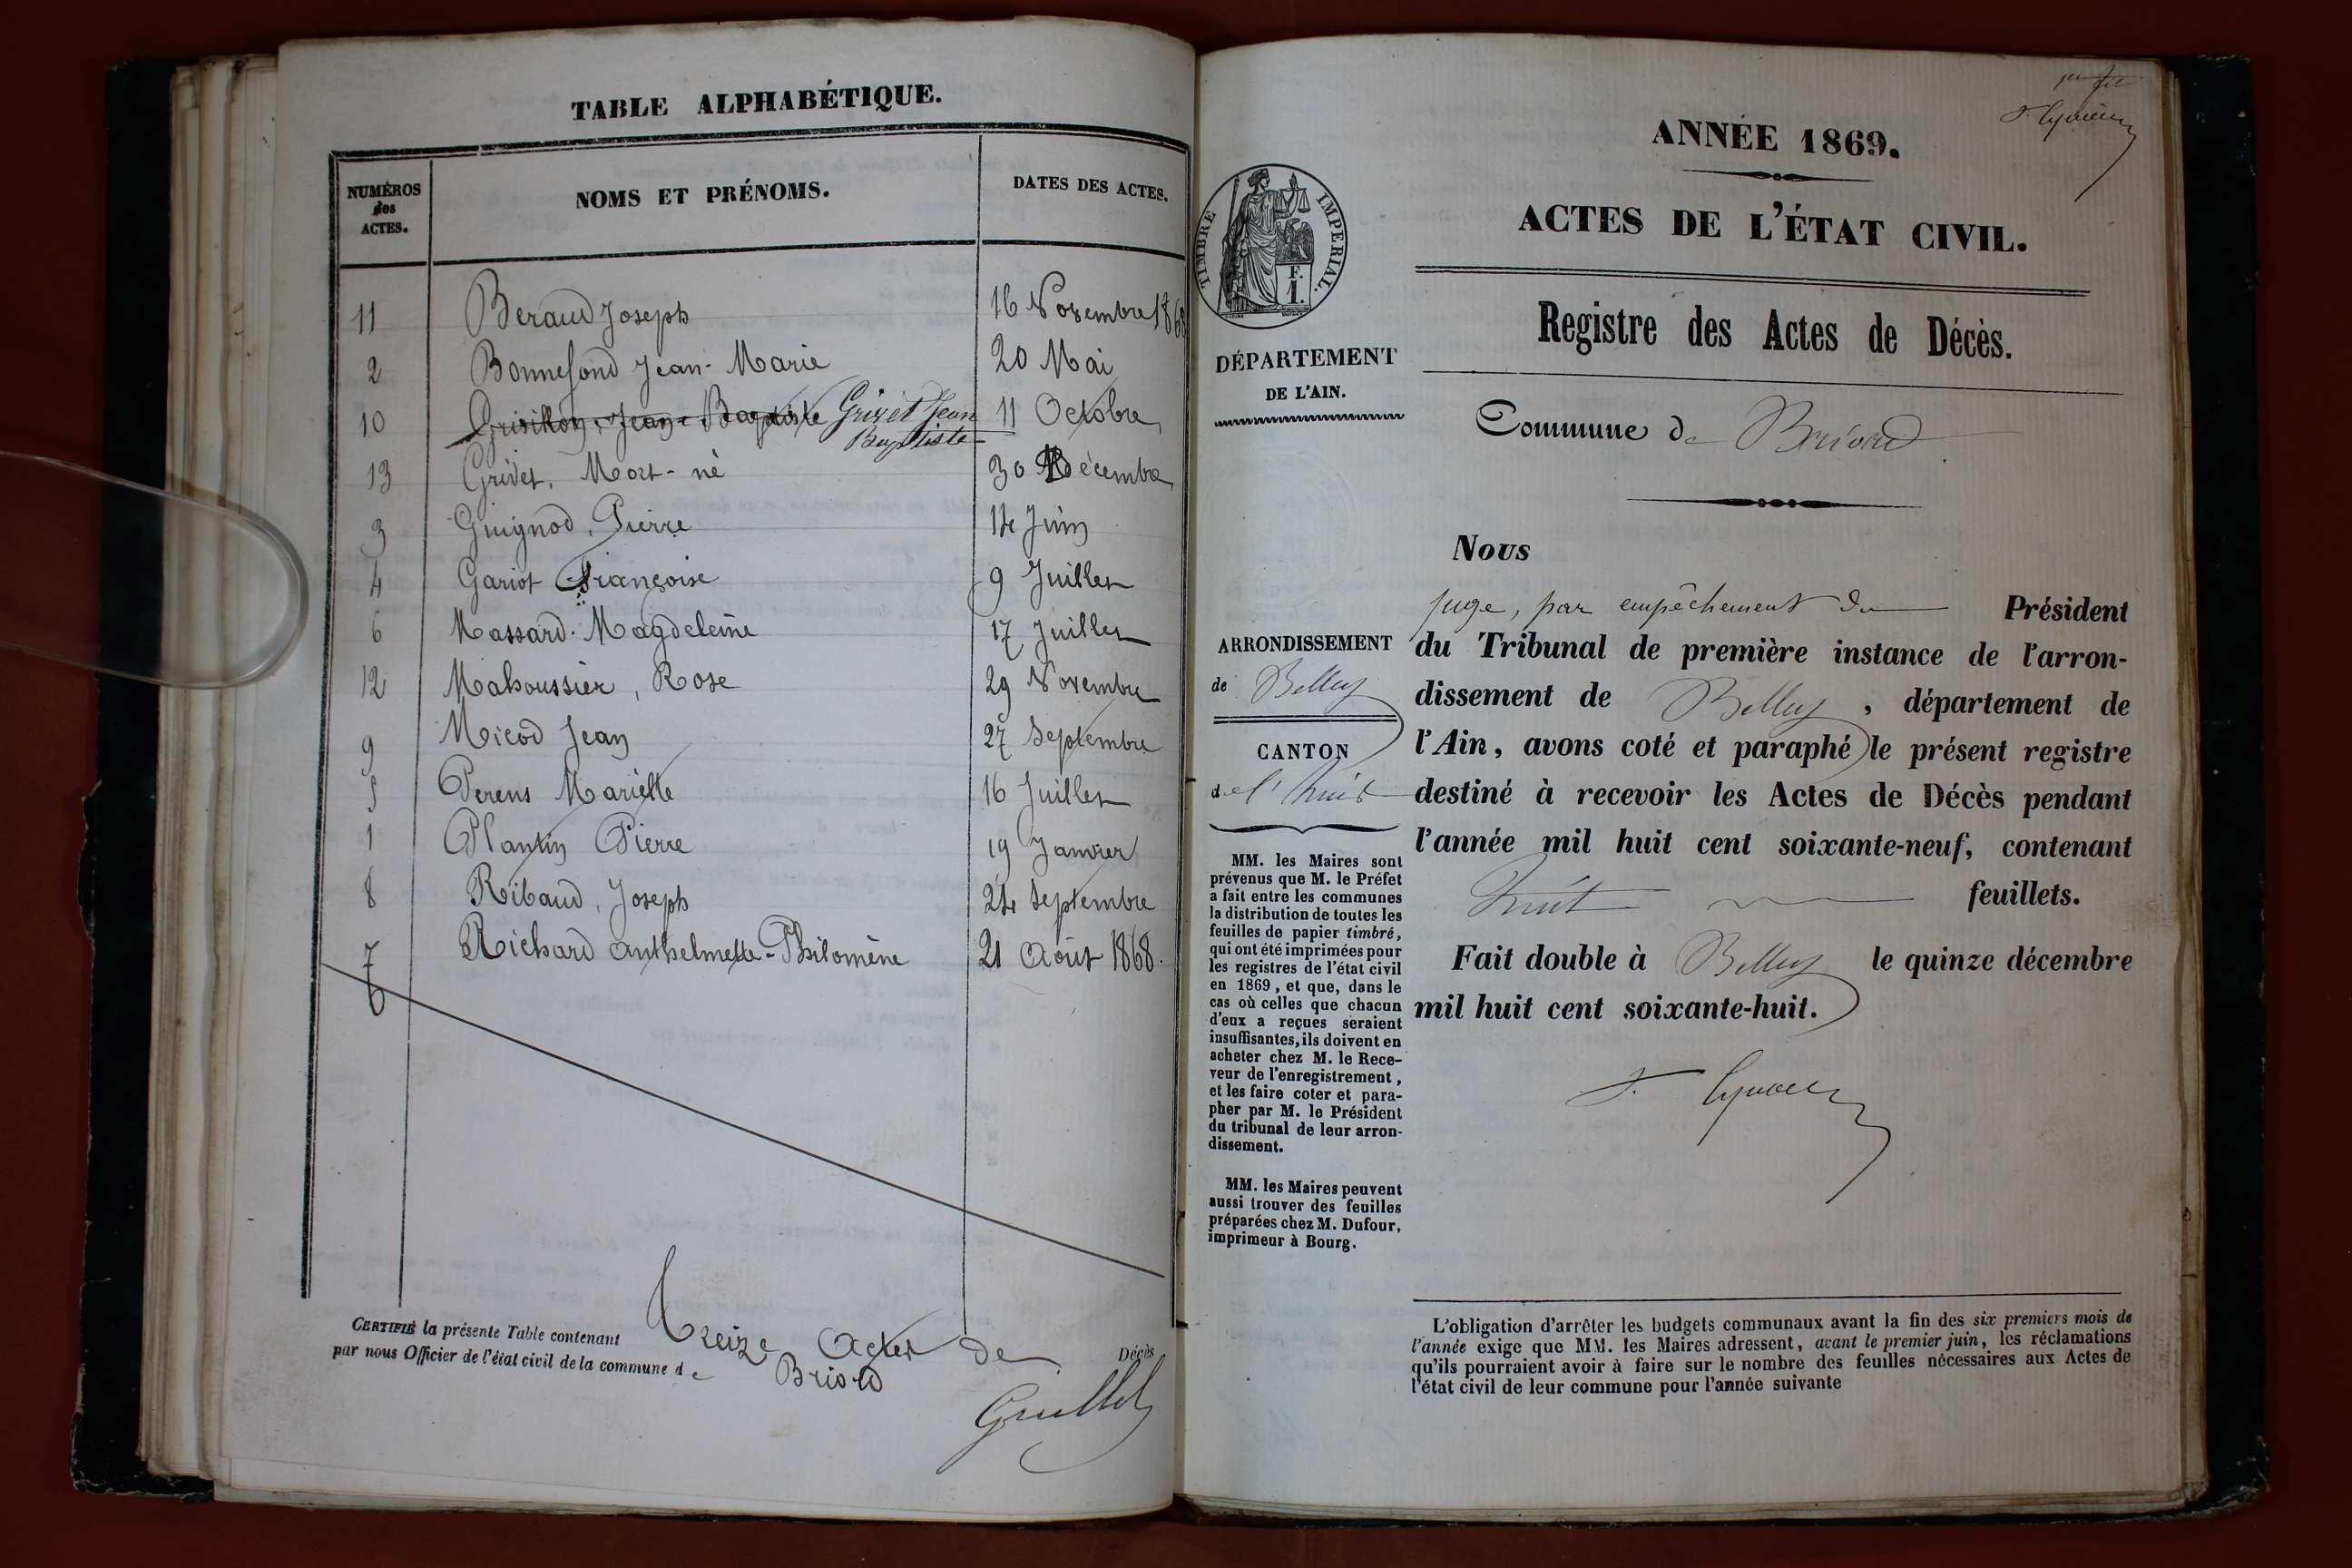 TABLE ALPHABÉTIQUE.
NUMÉROS des ACTES. NOMS ET PRÉNOMS. DATES DES ACTES.
11 Beraud Joseph 16 Novembre 1868
2 Bonnefond Jean-Marie 20 Mai
10 Jean-Baptiste Grivet Jean Baptiste 11 Octobre
13 Grivet, Mort-né 30 Décembre
3 Guignod, Pierre 14 Juin
4 Gariot Françoise 9 Juillet
6 Massard Magdeleine 17 Juillet
12 Mahoussier, Rose 29 Novembre
9 Micod Jean 27 Septembre
5 Perens Mariette 16 Juillet
1 Plantin Pierre 19 Janvier
8 Ribaud, Joseph 24 Septembre
7 Richard Anthelmette-Philomène 21 Août 1868.
CERTIFIÉ la présente Table contenant Treize Actes de Décès
par nous Officier de l'état civil de la commune de Briord
ANNÉE 1869.
ACTES DE L'ÉTAT CIVIL.
Registre des Actes de Décès.
TIMBRE IMPERIAL.
F.
1.
DÉPARTEMENT
DE L'AIN.
Commune de Briord
ARRONDISSEMENT
de Belley
CANTON
de l'huis
MM. les Maires sont
prévenus que M. le Préfet
a fait entre les communes
la distribution de toutes les
feuilles de papier timbré,
qui ont été imprimées pour
les registres de l'état civil
en 1869, et que, dans le
cas où celles que chacun
d'eux a reçues seraient
insuffisantes, ils doivent en
acheter chez M. le Rece-
veur de l'enregistrement,
et les faire coter et para-
pher par M. le Président
du tribunal de leur arron-
dissement.
MM. les Maires peuvent
aussi trouver des feuilles
préparées chez M. Dufour,
imprimeur à Bourg.
Nous
juge, par empêchement du Président
du Tribunal de première instance de l'arron-
dissement de Belley, département de
l'Ain, avons coté et paraphé le présent registre
destiné à recevoir les Actes de Décès pendant
l'année mil huit cent soixante-neuf, contenant
huit feuillets.
Fait double à Belley le quinze décembre
mil huit cent soixante-huit.
L'obligation d'arrêter les budgets communaux avant la fin des six premiers mois de
l'année exige que MM. les Maires adressent, avant le premier juin, les réclamations
qu'ils pourraient avoir à faire sur le nombre des feuilles nécessaires aux Actes de
l'état civil de leur commune pour l'année suivante